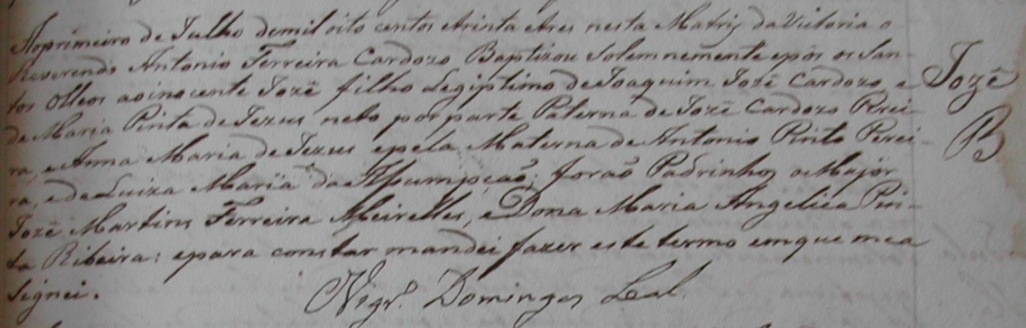 Aoprimeiro de Julho demil oito centos etrinta etres nesta Matris da Victoria o
Reverendo Antonio Ferreira Cardozo Baptizou Solemnemente epôr os San-
tos Olleos ao inocente Jozé filho Legiptimo de Joaquim Jozé Cardozo, e
de Maria Pinta de Jezus neto por parte Paterna de Jozé Cardozo Prei-
ra, e Anna Maria de Jezus epela Materna de Antonio Pinto Perei-
ra, e de Luiza Maria da Assumpçaõ; foraõ Padrinhos o Major
Jozé Martins Ferreira Meirelles, e Dona Maria Angelica Pin-
ta Ribeira: epara constar mandei fazer este termo emque mea
signei.
Vigrº. Domingos Leal.
Jozé
B